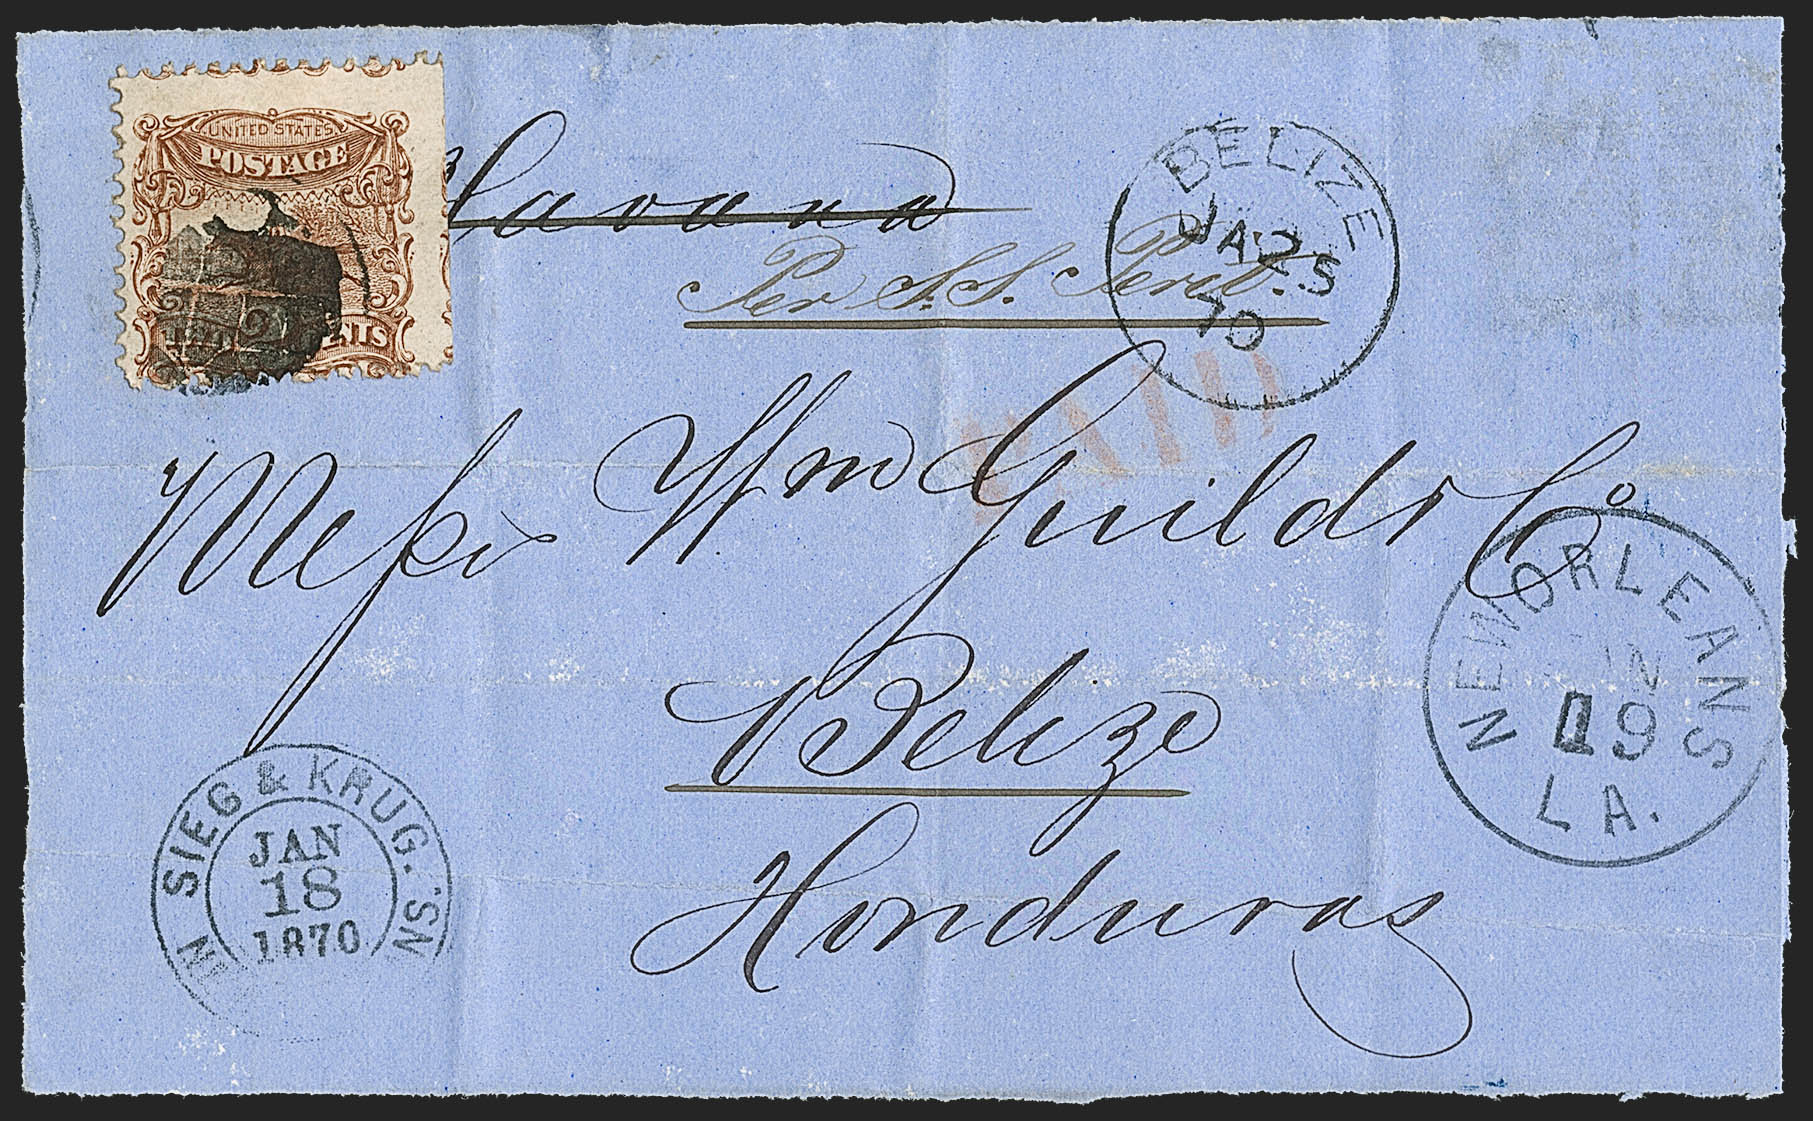 UNITED STATES
POSTAGE
CENTS
Havana
Per S.S. Perit.
BELIZE
JA 25
70
PAID
Messrs Wm Guild & Co
Belize
Honduras
NEW ORLEANS
19
LA.
SIEG & KRUG. N
JAN
18
1870